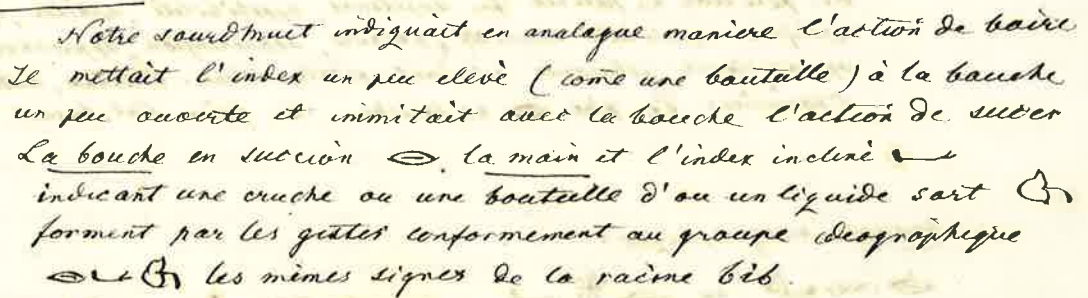 Notre sourdmuet indiquait en analogue maniere l'action de boire
Il mettait l'index un peu elevé (come une bouteille) à la bouche
un peu ouverte et immitait avec la bouche l'action de sucer
La bouche en succion la main et l'index incliné
indicant une cruche ou une bouteille d'ou un liquide sort
forment par les gestes conformement au groupe ideographique
les mêmes signes de la racine bib.